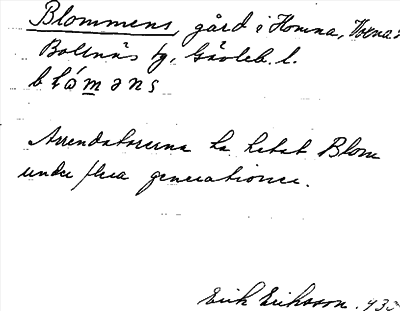 Blommens, gård i Homna,
Bollnäs sg, Gävleb. l.
blóməns
Arrendatorerna ha hetat Blom
under flera generationer.
Erik Eriksson. 935